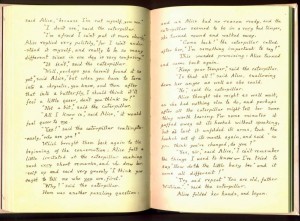 said Alice, "because I'm not myself, you see."
"I don't see," said the caterpillar.
"I'm afraid I can't put it more clearly,"
Alice replied very politely, "for I can't under-
stand it myself, and really to be so many
different sizes in one day is very confusing."
"It isn't," said the caterpillar.
"Well, perhaps you haven't found it so
yet," said Alice, "but when you have to turn
into a chrysalis, you know, and then after
that into a butterfly, I should think it'll
feel a little queer, don't you think so?"
"Not a bit," said the caterpillar.
"All I know is," said Alice, "it would
feel queer to me."
"You!" said the caterpillar contemptuous-
"who are you?"
Which brought them back again to the
beginning of the conversation: Alice felt a
little irritated at the caterpillar making
such very short remarks, and she drew her-
self up and said very gravely "I think you
ought to tell me who you are, first."
"Why?" said the caterpillar.
Here was another puzzling question:
and as Alice had no reason ready, and the
caterpillar seemed to be in a very bad temper,
she turned round and walked away.
"Come back!" the caterpillar called
after her, "I've something important to say!"
This sounded promising: Alice turned
and came back again.
"Keep your temper," said the caterpillar.
"Is that all?" said Alice, swallowing
down her anger as well as she could.
"No," said the caterpillar.
Alice thought she might as well wait,
as she had nothing else to do, and perhaps
after all the caterpillar might tell her some-
thing worth hearing. For some minutes it
puffed away at its hookah without speaking,
but at last it unfolded its arms, took the
hookah out of its mouth again, and said "so
you think you're changed, do you?"
"Yes, sir," said Alice, "I can't remember
the things I used to know—I've tried to
say "How doth the little busy bee" and it
came all different!"
"Try and repeat "You are old, father
William"," said the caterpillar.
Alice folded her hands, and began: